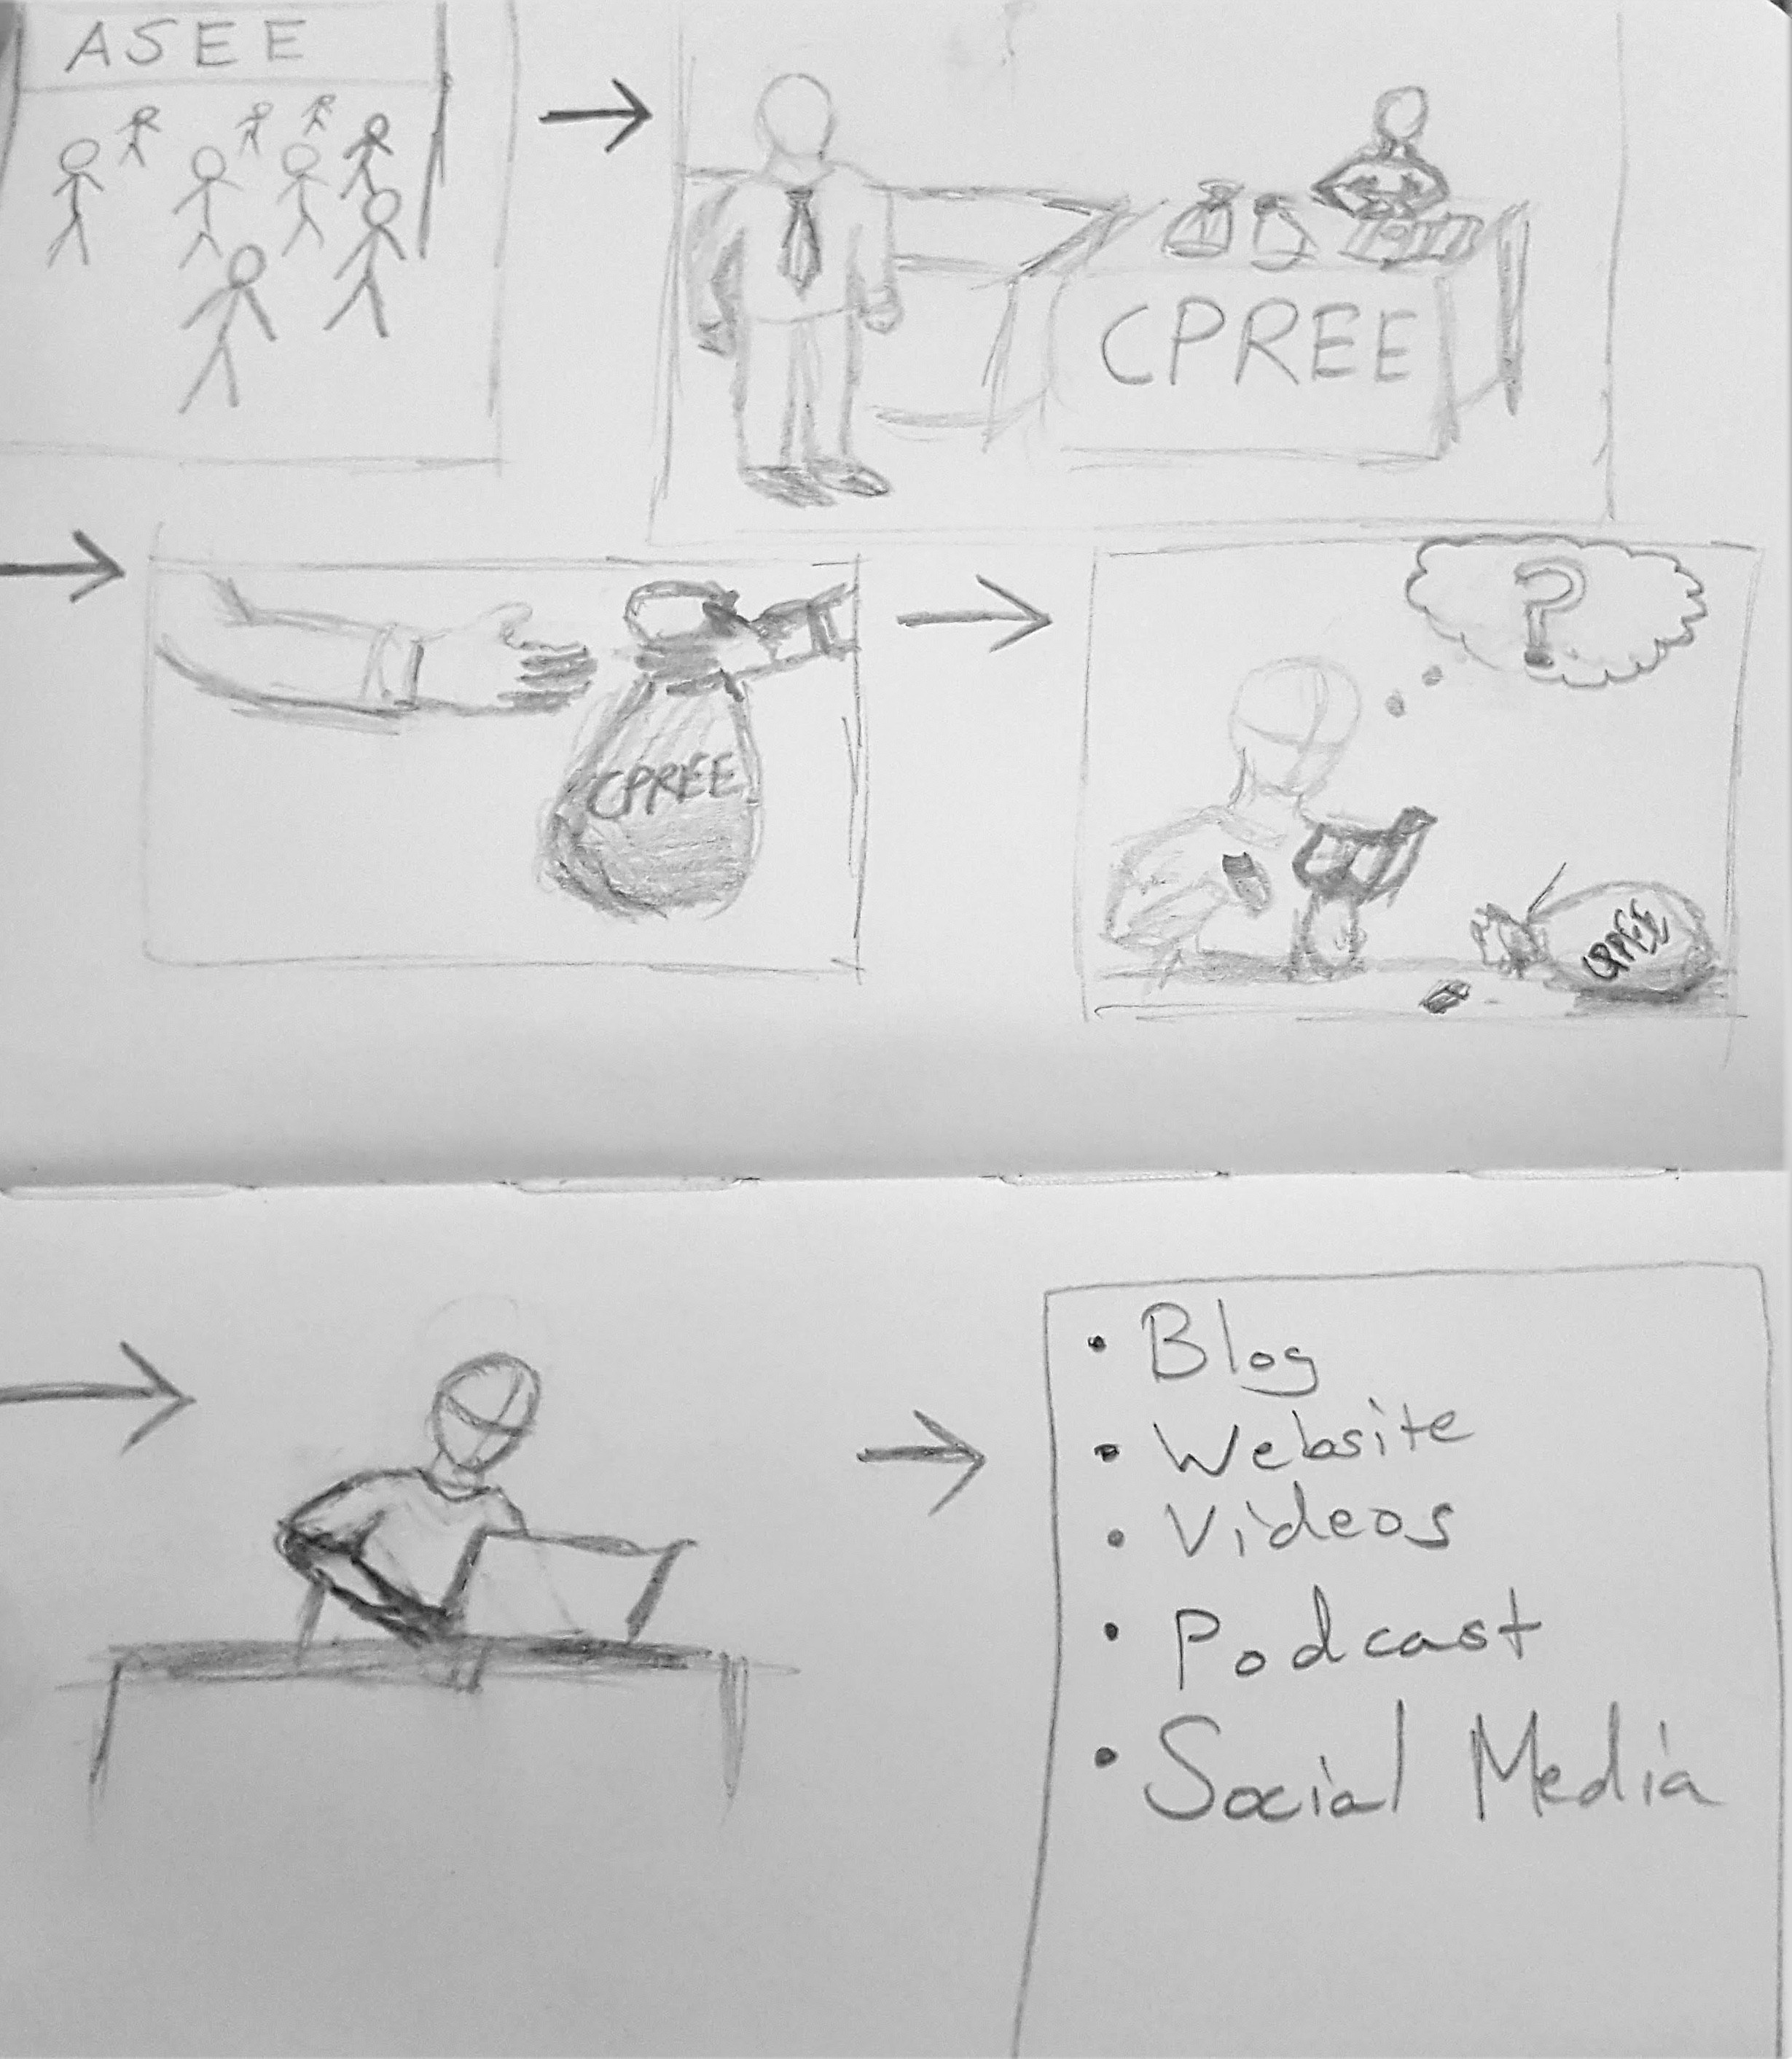 ASEE
CPREE
CPREE
?
CPREE
• Blog
• Website
• Videos
• Podcast
• Social Media